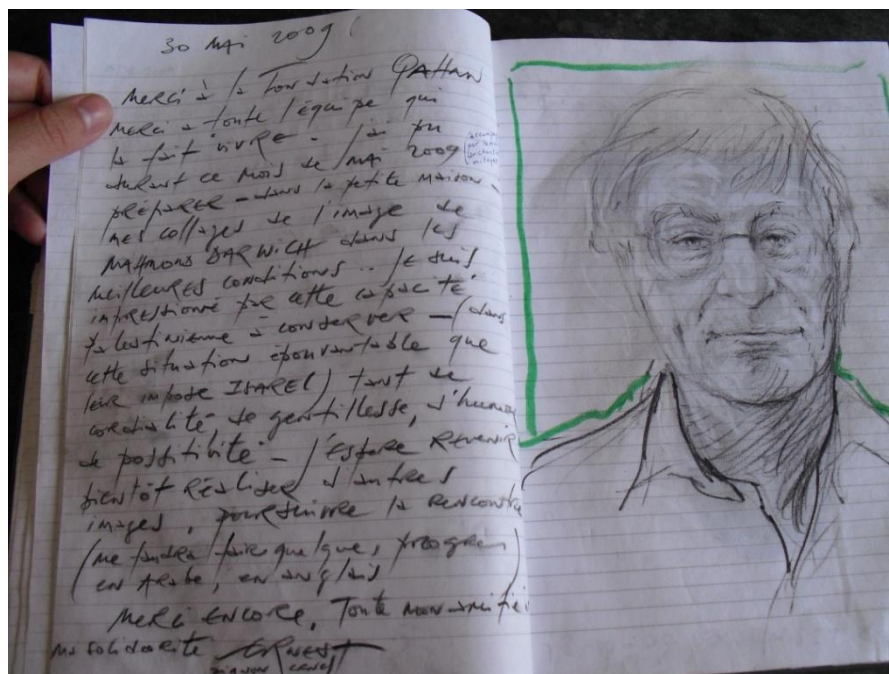 30 MAI 2009
MERCI à la Fondation QATTAN
MERCI à toute l'équipe qui
la fait vivre - j'ai pu
durant ce mois de MAI 2009
PRÉPARER - dans la petite maison -
mes collages de l'image de
MAHMOUD DARWICH dans les
MEILLEURES conditions .. je suis
impressionné par cette capacité
Palestinienne à conserver - (dans
cette situation épouvantable que
leur impose ISAREL) tant de
cordialité de gentillesse, d'humour
de positivité - j'espère REVENIR
bientôt Réaliser d'autres
images, poursuivre la Rencontre
(me faudra faire quelque, progres
en ARABE, en anglais)
MERCI ENCORE, Toute mon amitié
ma solidarité ERNEST